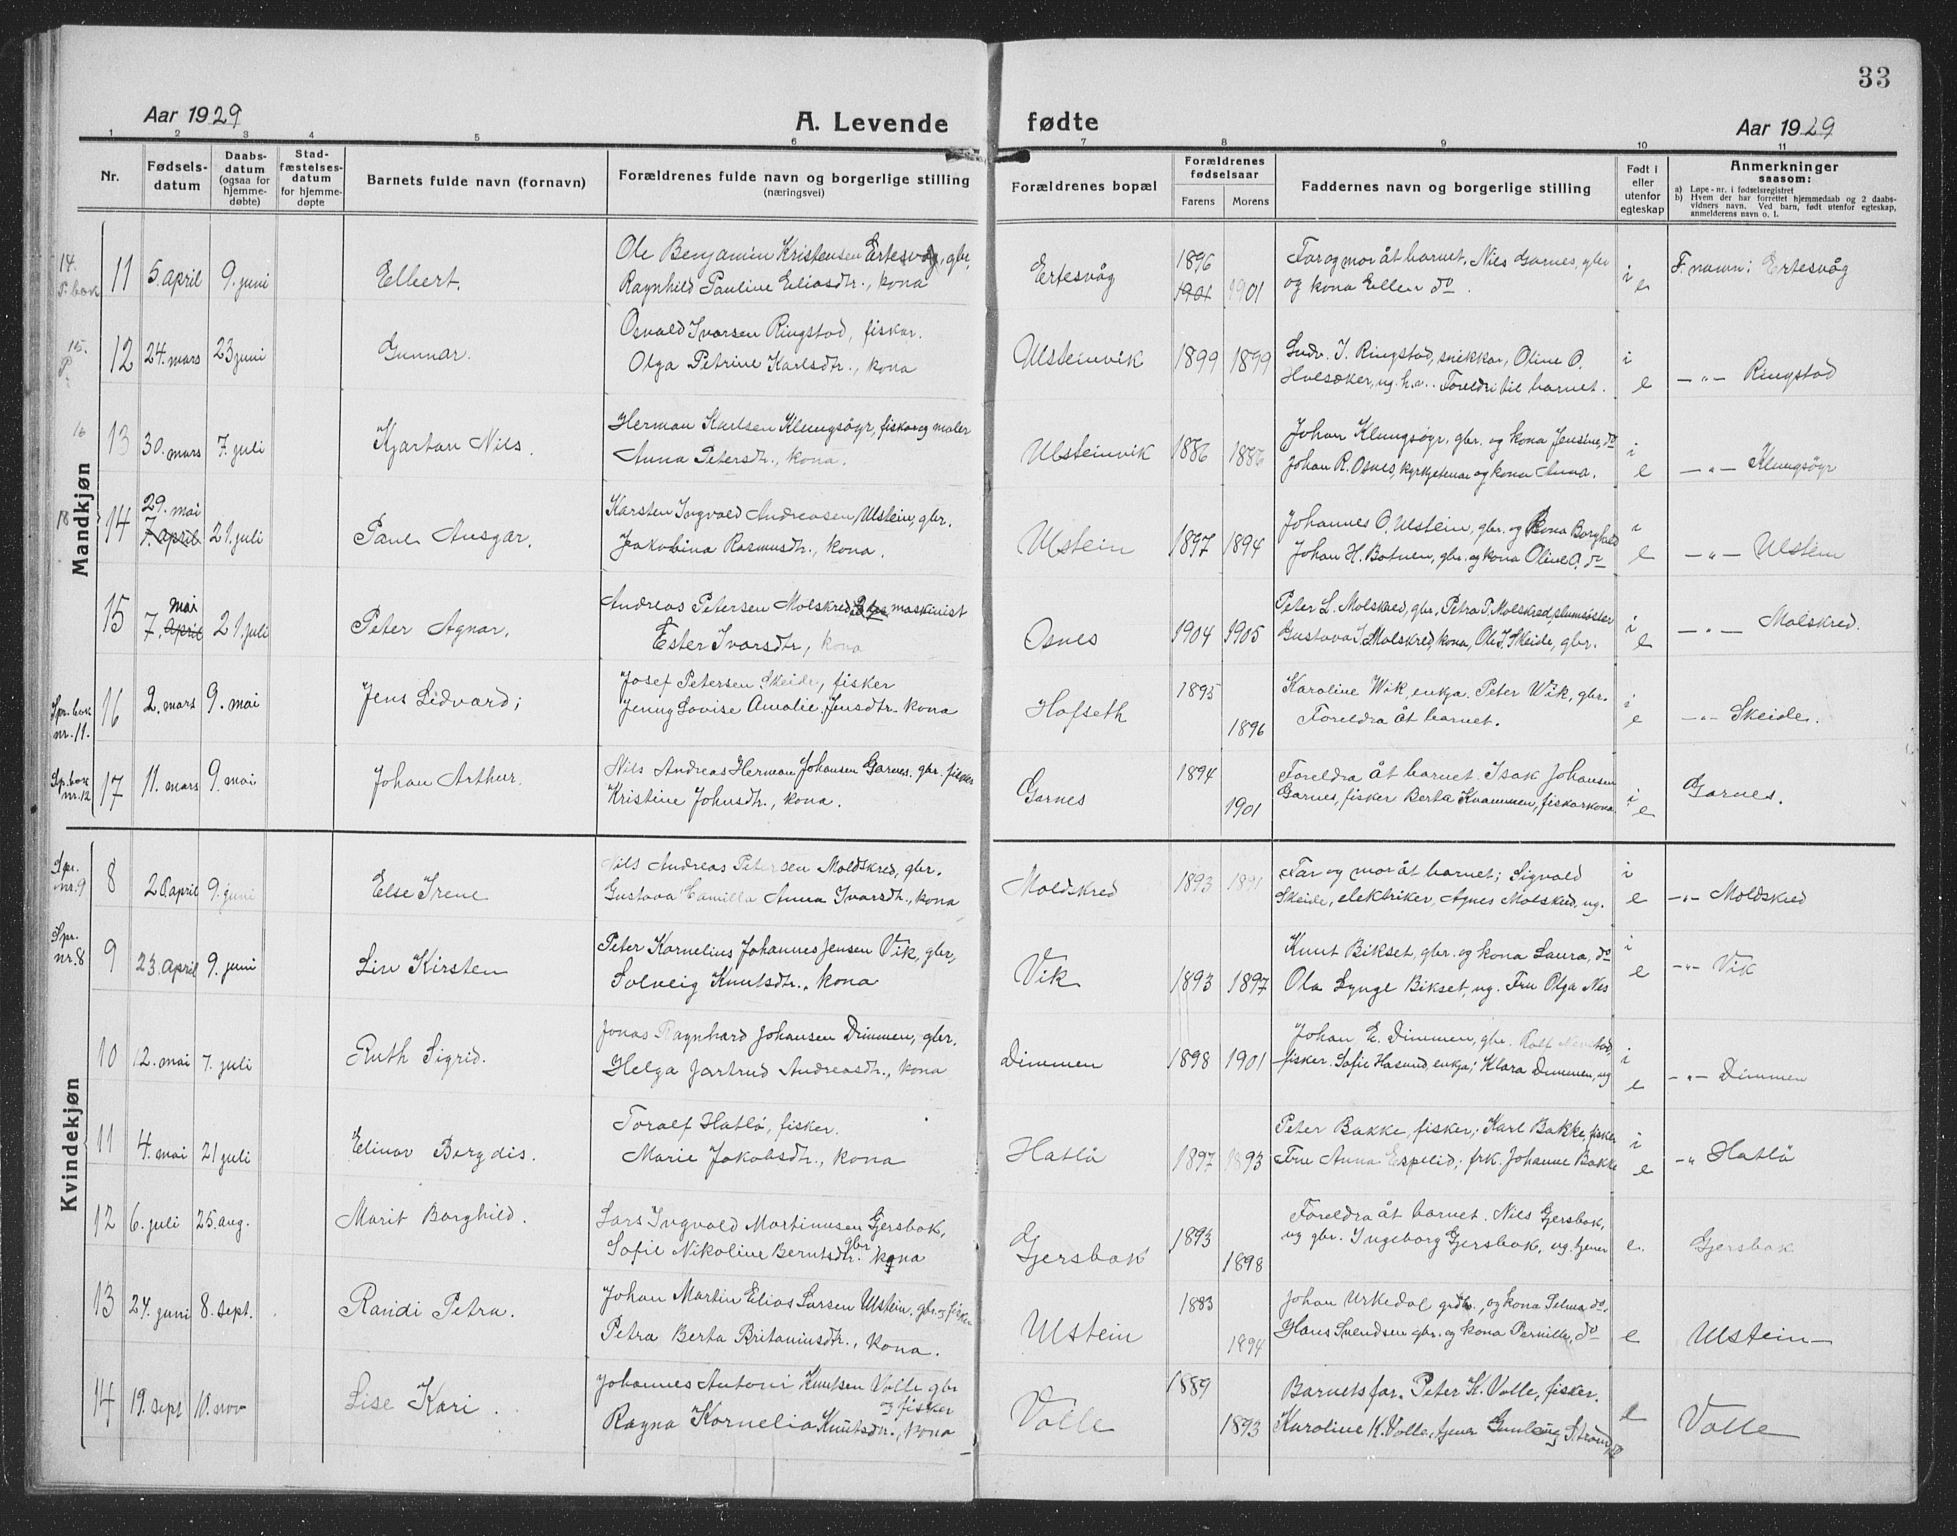 33
Aar 1929 A. Levende fødte Aar 1929
1 2 3 4 5 6 7 8 9 10 11
Nr. Fødsels-datum Daabs-datum (ogsaa for hjemme-døbte) Stad-fæstelses-datum for hjemme-døpte Barnets fulde navn (fornavn) Forældrenes fulde navn og borgerlige stilling (næringsvei) Forældrenes bopæl Forældrenes fødselsaar Farens Morens Faddernes navn og borgerlige stilling Født i eller utenfor egteskap Anmerkninger saasom:
a) Løpe-nr. i fødselsregistret
b) Hvem der har forrettet hjemmedaab og 2 daabs-vidners navn. Ved barn, født utenfor egteskap, anmelderens navn o. l.
Mandkjøn
14. 11 5. april 9. juni Elbert. Ole Benjamin Kristensen Ertesvåg, gbr, Ertesvåg 1896 Far og mor åt barnet. Nils Garnes, gbr i F. navn: Ertesvåg
Ragnhild Pauline Eliasdtr., kona 1901 1901 og kona Ellen do. e
15. 12 24. mars 23 juni Gunnar. Osvald Ivarsen Ringstad, fiskar. Ulsteinvik 1899 1899 Gudv. I. Ringstad, snikkar, Oline O. i -"- Ringstad
Olga Petrine Karlsdtr., kona Holsæker, ug. h.v.. Foreldri til barnet. e
16 13 30. mars 7. juli Kjartan Nils. Herman Karlsen Klungsöyr, fiskar og maler Ulsteinvik 1886 1886 Johan Klungsøyr, gbr. og kona Jensine, do i -"- Klungsöyr
Anna Petersdtr., kona. Johan R. Osnes, kyrkjetenar og kona Anna. e
18 14 29. mai 7. april 21. juli Paul Ansgar. Karsten Ingvald Andreasen Ulstein, gbr. Ulstein 1897 1894 Johannes O. Ulstein, gbr. og kona Borghild i -"- Ulstein
Jakobina Rasmusdtr., kona. Johan H. Botnen, gbr. og kona Oline O. do e
15 7. mai april 21. juli Peter Agnar. Andreas Petersen Molskred, maskinist Osnes 1904 1905 Peter L. Molskred, gbr, Petra P. Molskred, i -"- Molskred.
Ester Ivarsdtr, kona Gustava I. Molskred, kona, Ole I. Skeide, gbr. e
Spr. bok nr. 11. 16 2. mars 9. mai Jens Lidvard; Josef Petersen Skeide, fisker Hofseth 1895 Karoline Wik, enkja. Peter Wik, gbr. i -"- Skeide.
Jenny Lovise Amalie Jensdtr. kona 1896 Foreldra åt barnet. e
Sp. bok nr. 12 17 11. mars 9. mai Johan Arthur. Nils Andreas Herman Johansen Garnes. gbr. fisker Garnes 1894 Foreldra åt barnet. Isak Johansen i Garnes.
Kristine Johnsdtr., kona. 1901 Garnes, fisker Berta Kvammen, fiskarkona e
Kvindekjøn
Spr. nr. 9 8 20. april 9. juni Else Irene Nils Andreas Petersen Moldskred, gbr. Moldskred 1893 1891 Far og mor åt barnet; Sigvald i -"- Moldskred
Gustava Camilla Anna Ivarsdtr., kona Skeide, elektriker, Agnes Molskred, ug. e
Spr. nr. 8 9 23. april 9. juni Liv Kirsten Peter Kornelius Johannes Jensen Vik, gbr, Vik 1893 1897 Knut Bikset, gbr. og kona Laura, do i -"- Vik
Solveig Knutsdtr., kona Ola Lynge Bikset, ug. Fru Olga Nes e
10 12. mai 7. juli Ruth Sigrid. Jonas Ragnhard Johansen Dimmen, gbr. Dimmen 1898 1901 Johan E. Dimmen, gbr. Rolf i -"- Dimmen
Helga Jartrud Andreasdtr., kona fisker. Sofie Hasund, enkja; Klara Dimmen, ug e
11 4. mai 21 juli Elinor Bergdis. Toralf Hatlö, fisker. Hatlö 1897 1893 Peter Bakke, fisker; Karl Bakke, fisker i -" Hatlö
Marie Jakobsdtr., kona Fru Anna Espelid; frk. Johanne Bakke e
12 6. juli 25. aug. Marit Borghild. Lars Ingvald Martinusen Gjersbak, Gjersbak 1893 Foreldra åt barnet. Nils Gjersbak, Gjersbak
Sofie Nikoline Berntsdtr. gbr kona 1898 ug gbr. Ingeborg Gjersbak, ug. tjener e.
13 24. juni 8. sept. Randi Petra. Johan Martin Elias Larsen Ulstein, gbr. og fisker Ulstein 1883 Johan Urkedal grdb., og kona Selma do. Ulstein
Petra Berta Britaniusdtr., kona. 1894 Hans Svendsen gbr. og kona Pernille, do e
14 19. sept 10. nov Lise Kari. Johannes Antoni Knutsen Volle gbr og fisker Volle 1889 Barnets far. Peter K. Volle, fisker. e Volle
Ragna Kornelia Knutsdtr., kona 1893 Karoline K. Volle, tjener